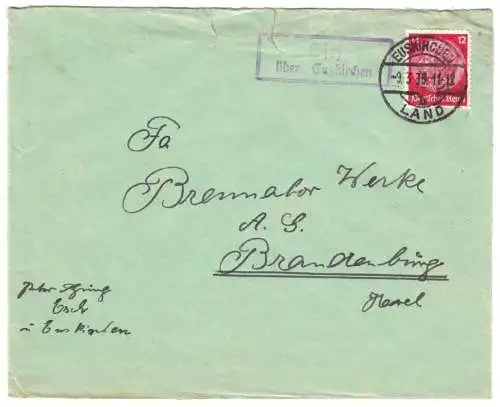 über Euskirchen
EUSKIRCHEN
-9.3.39.11-12
LAND
12
Deutsches Reich
Fa
Brennabor Werke
A. G.
Brandenburg
Havel
Esch
ü Euskirchen